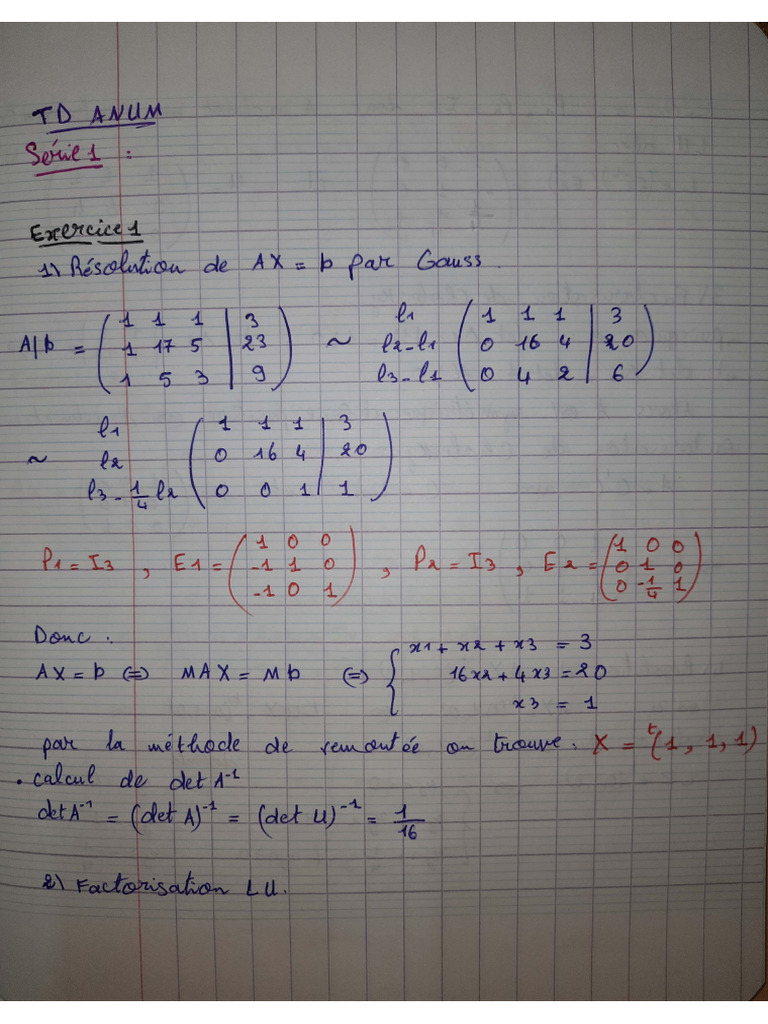 TD ANUM
Série 1 :
Exercice 1
1) Résolution de AX = b par Gauss.
A|b = ( 1 1 1 | 3 ; 1 17 5 | 23 ; 1 5 3 | 9 ) ~ l1 l2-l1 l3-l1 ( 1 1 1 | 3 ; 0 16 4 | 20 ; 0 4 2 | 6 )
~ l1 l2 l3-1/4 l2 ( 1 1 1 | 3 ; 0 16 4 | 20 ; 0 0 1 | 1 )
P1 = I3 , E1 = ( 1 0 0 ; -1 1 0 ; -1 0 1 ) , P2 = I3 , E2 = ( 1 0 0 ; 0 1 0 ; 0 -1/4 1 )
Donc :
AX = b <=> MAX = Mb <=> { x1 + x2 + x3 = 3 ; 16x2 + 4x3 = 20 ; x3 = 1
par la méthode de remontée on trouve. X = ᵗ(1, 1, 1)
• calcul de det A⁻¹
det A⁻¹ = (det A)⁻¹ = (det U)⁻¹ = 1/16
2) Factorisation LU.